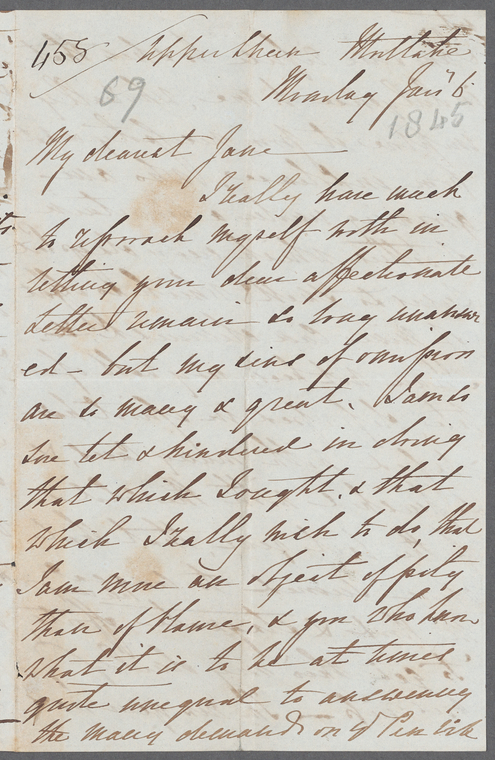 455 Upper Cheen Mortlake
69 Monday Jan'y 6
1845
My dearest Jane
I really have much
to reproach myself with in
letting your dear affectionate
Letter remain so long unanswer
ed - but my sins of omission
are so many & great. I am so
sore let & hindered in doing
that which I ought. & that
which I really wish to do, that
I am more an object of pity
than of blame, & you who know
what it is to be at times
quite unequal to answering
the many demands on y'r Pen will